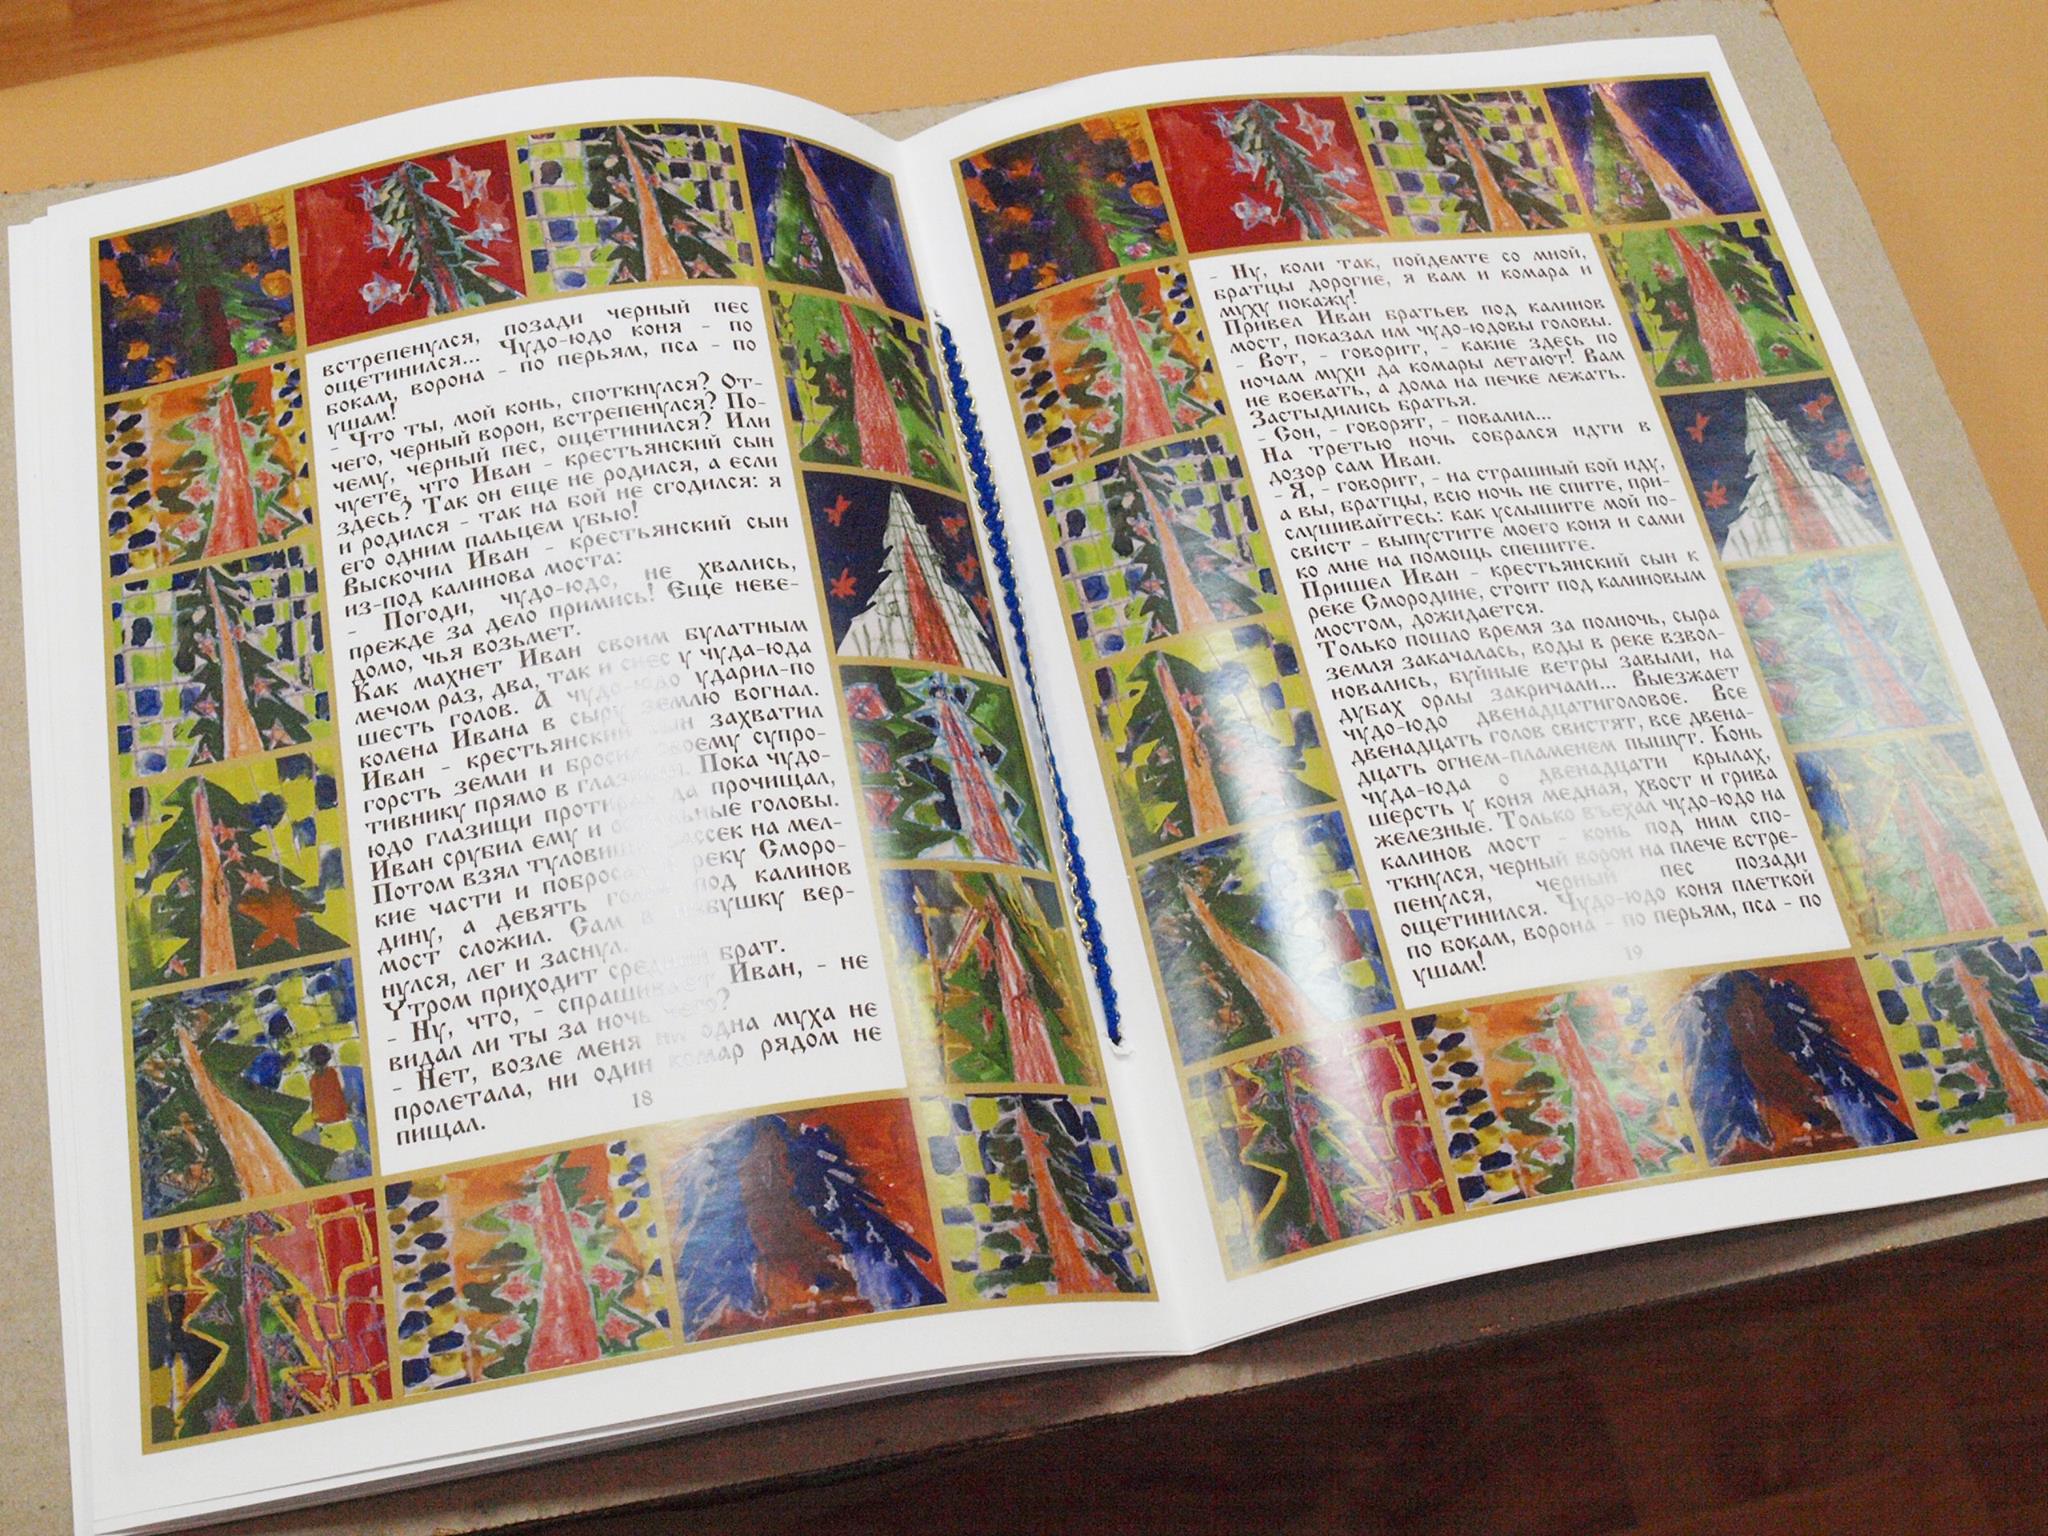 встрепенулся, позади черный пес
ощетинился... Чудо-юдо коня - по
бокам, ворона - по перьям, пса - по
ушам!
- Что ты, мой конь, споткнулся? От-
чего, черный ворон, встрепенулся? По-
чему, черный пес, ощетинился? Или
чуете, что Иван - крестьянский сын
здесь? Так он еще не родился, а если
и родился - так на бой не сгодился: я
его одним пальцем убью!
Выскочил Иван - крестьянский сын
из-под калинова моста:
- Погоди, чудо-юдо, не хвались,
прежде за дело примись! Еще неве-
домо, чья возьмет.
Как махнет Иван своим булатным
мечом раз, два, так и снес у чуда-юда
шесть голов. А чудо-юдо ударил-по
колена Ивана в сыру землю вогнал.
Иван - крестьянский сын захватил
горсть земли и бросил своему супро-
тивнику прямо в глазищи. Пока чудо-
юдо глазищи протирал да прочищал,
Иван срубил ему и остальные головы.
Потом взял туловище, рассек на мел-
кие части и побросал в реку Сморо-
дину, а девять голов под калинов
мост сложил. Сам в избушку вер-
нулся, лег и заснул.
Утром приходит средний брат.
- Ну, что, - спрашивает Иван, - не
видал ли ты за ночь чего?
- Нет, возле меня ни одна муха не
пролетала, ни один комар рядом не
пищал.
18
- Ну, коли так, пойдемте со мной,
братцы дорогие, я вам и комара и
муху покажу!
Привел Иван братьев под калинов
мост, показал им чудо-юдовы головы.
- Вот, - говорит, - какие здесь по
ночам мухи да комары летают! Вам
не воевать, а дома на печке лежать.
Застыдились братья.
- Сон, - говорят, - повалил...
На третью ночь собрался идти в
дозор сам Иван.
- Я, - говорит, - на страшный бой иду,
а вы, братцы, всю ночь не спите, при-
слушивайтесь: как услышите мой по-
свист - выпустите моего коня и сами
ко мне на помощь спешите.
Пришел Иван - крестьянский сын к
реке Смородине, стоит под калиновым
мостом, дожидается.
Только пошло время за полночь, сыра
земля закачалась, воды в реке взвол-
новались, буйные ветры завыли, на
дубах орлы закричали... Выезжает
чудо-юдо двенадцатиголовое. Все
двенадцать голов свистят, все двена-
дцать огнем-пламенем пышут. Конь
чуда-юда о двенадцати крылах,
шерсть у коня медная, хвост и грива
железные. Только въехал чудо-юдо на
калинов мост - конь под ним спо-
ткнулся, черный ворон на плече встре-
пенулся, черный пес позади
ощетинился. Чудо-юдо коня плеткой
по бокам, ворона - по перьям, пса - по
ушам!
19